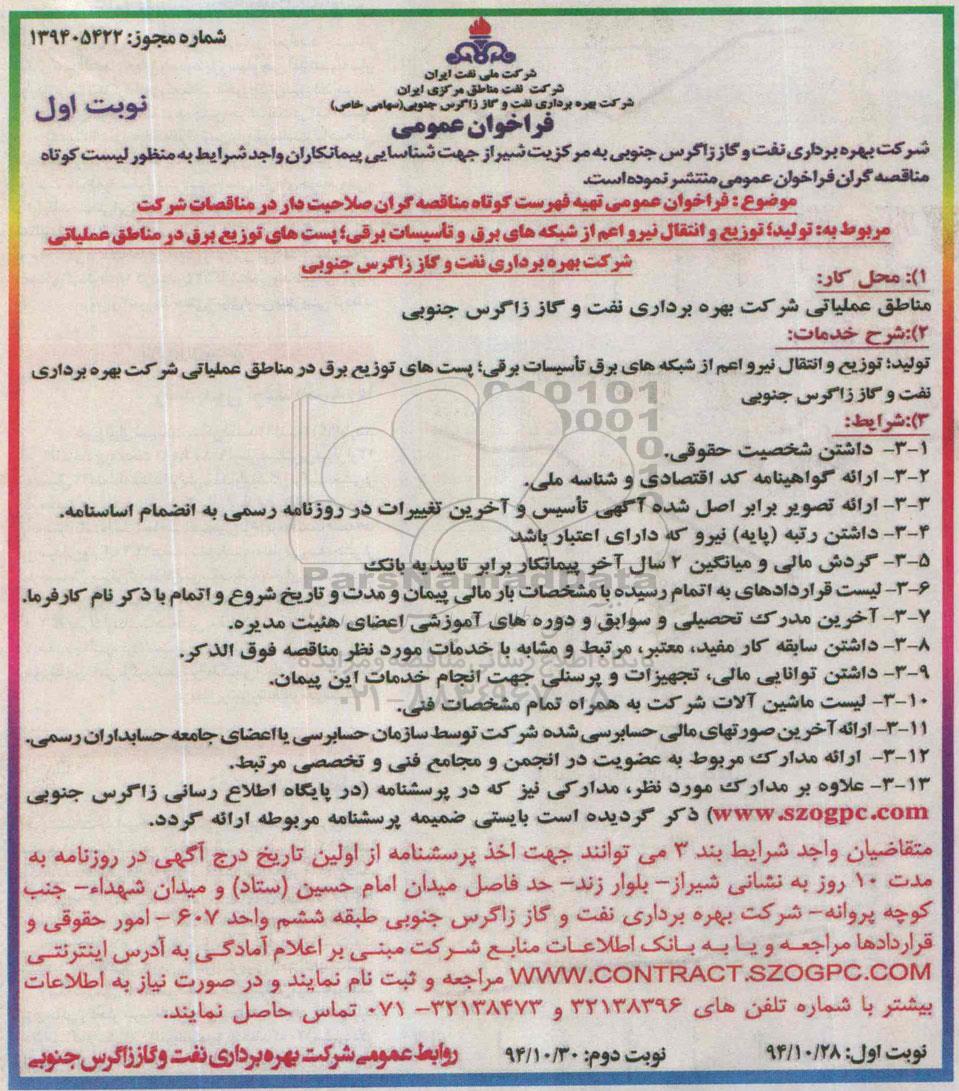 شماره مجوز: ۱۳۹۴۰۵۴۲۲
شرکت ملی نفت ایران
شرکت نفت مناطق مرکزی ایران
شرکت بهره برداری نفت و گاز زاگرس جنوبی(سهامی خاص)
نوبت اول
فراخوان عمومی
شرکت بهره برداری نفت و گاز زاگرس جنوبی به مرکزیت شیراز جهت شناسایی پیمانکاران واجد شرایط به منظور لیست کوتاه
مناقصه گران فراخوان عمومی منتشر نموده است.
موضوع : فراخوان عمومی تهیه فهرست کوتاه مناقصه گران صلاحیت دار در مناقصات شرکت
مربوط به: تولید؛ توزیع و انتقال نیرو اعم از شبکه های برق و تأسیسات برقی؛ پست های توزیع برق در مناطق عملیاتی
شرکت بهره برداری نفت و گاز زاگرس جنوبی
۱): محل کار:
مناطق عملیاتی شرکت بهره برداری نفت و گاز زاگرس جنوبی
۲):شرح خدمات:
تولید؛ توزیع و انتقال نیرو اعم از شبکه های برق تأسیسات برقی؛ پست های توزیع برق در مناطق عملیاتی شرکت بهره برداری
نفت و گاز زاگرس جنوبی
۳):شرایط:
۳-۱- داشتن شخصیت حقوقی.
۳-۲- ارائه گواهینامه کد اقتصادی و شناسه ملی.
۳-۳- ارائه تصویر برابر اصل شده آگهی تأسیس و آخرین تغییرات در روزنامه رسمی به انضمام اساسنامه.
۳-۴- داشتن رتبه (پایه) نیرو که دارای اعتبار باشد
۳-۵- گردش مالی و میانگین ۲ سال آخر پیمانکار برابر تاییدیه بانک
۳-۶- لیست قراردادهای به اتمام رسیده با مشخصات بار مالی پیمان و مدت و تاریخ شروع و اتمام با ذکر نام کارفرما.
۳-۷- آخرین مدرک تحصیلی و سوابق و دوره های آموزشی اعضای هئیت مدیره.
۳-۸- داشتن سابقه کار مفید، معتبر، مرتبط و مشابه با خدمات مورد نظر مناقصه فوق الذکر.
۳-۹- داشتن توانایی مالی، تجهیزات و پرسنلی جهت انجام خدمات این پیمان.
۳-۱۰- لیست ماشین آلات شرکت به همراه تمام مشخصات فنی.
۳-۱۱- ارائه آخرین صورتهای مالی حسابرسی شده شرکت توسط سازمان حسابرسی یا اعضای جامعه حسابداران رسمی.
۳-۱۲- ارائه مدارک مربوط به عضویت در انجمن و مجامع فنی و تخصصی مرتبط.
۳-۱۳- علاوه بر مدارک مورد نظر، مدارکی نیز که در پرسشنامه (در پایگاه اطلاع رسانی زاگرس جنوبی
www.szogpc.com) ذکر گردیده است بایستی ضمیمه پرسشنامه مربوطه ارائه گردد.
متقاضیان واجد شرایط بند ۳ می توانند جهت اخذ پرسشنامه از اولین تاریخ درج آگهی در روزنامه به
مدت ۱۰ روز به نشانی شیراز- بلوار زند- حد فاصل میدان امام حسین (ستاد) و میدان شهداء- جنب
کوچه پروانه- شرکت بهره برداری نفت و گاز زاگرس جنوبی طبقه ششم واحد ۶۰۷ - امور حقوقی و
قراردادها مراجعه و یا به بانک اطلاعات منابع شرکت مبنی بر اعلام آمادگی به آدرس اینترنتی
WWW.CONTRACT.SZOGPC.COM مراجعه و ثبت نام نمایند و در صورت نیاز به اطلاعات
بیشتر با شماره تلفن های ۳۲۱۳۸۳۹۶ و ۳۲۱۳۸۴۷۳- ۰۷۱ تماس حاصل نمایند.
نوبت اول: ۹۴/۱۰/۲۸
نوبت دوم: ۹۴/۱۰/۳۰
روابط عمومی شرکت بهره برداری نفت و گاز زاگرس جنوبی
ParsNamadData
پایگاه اطلاع رسانی مناقصه و مزایده